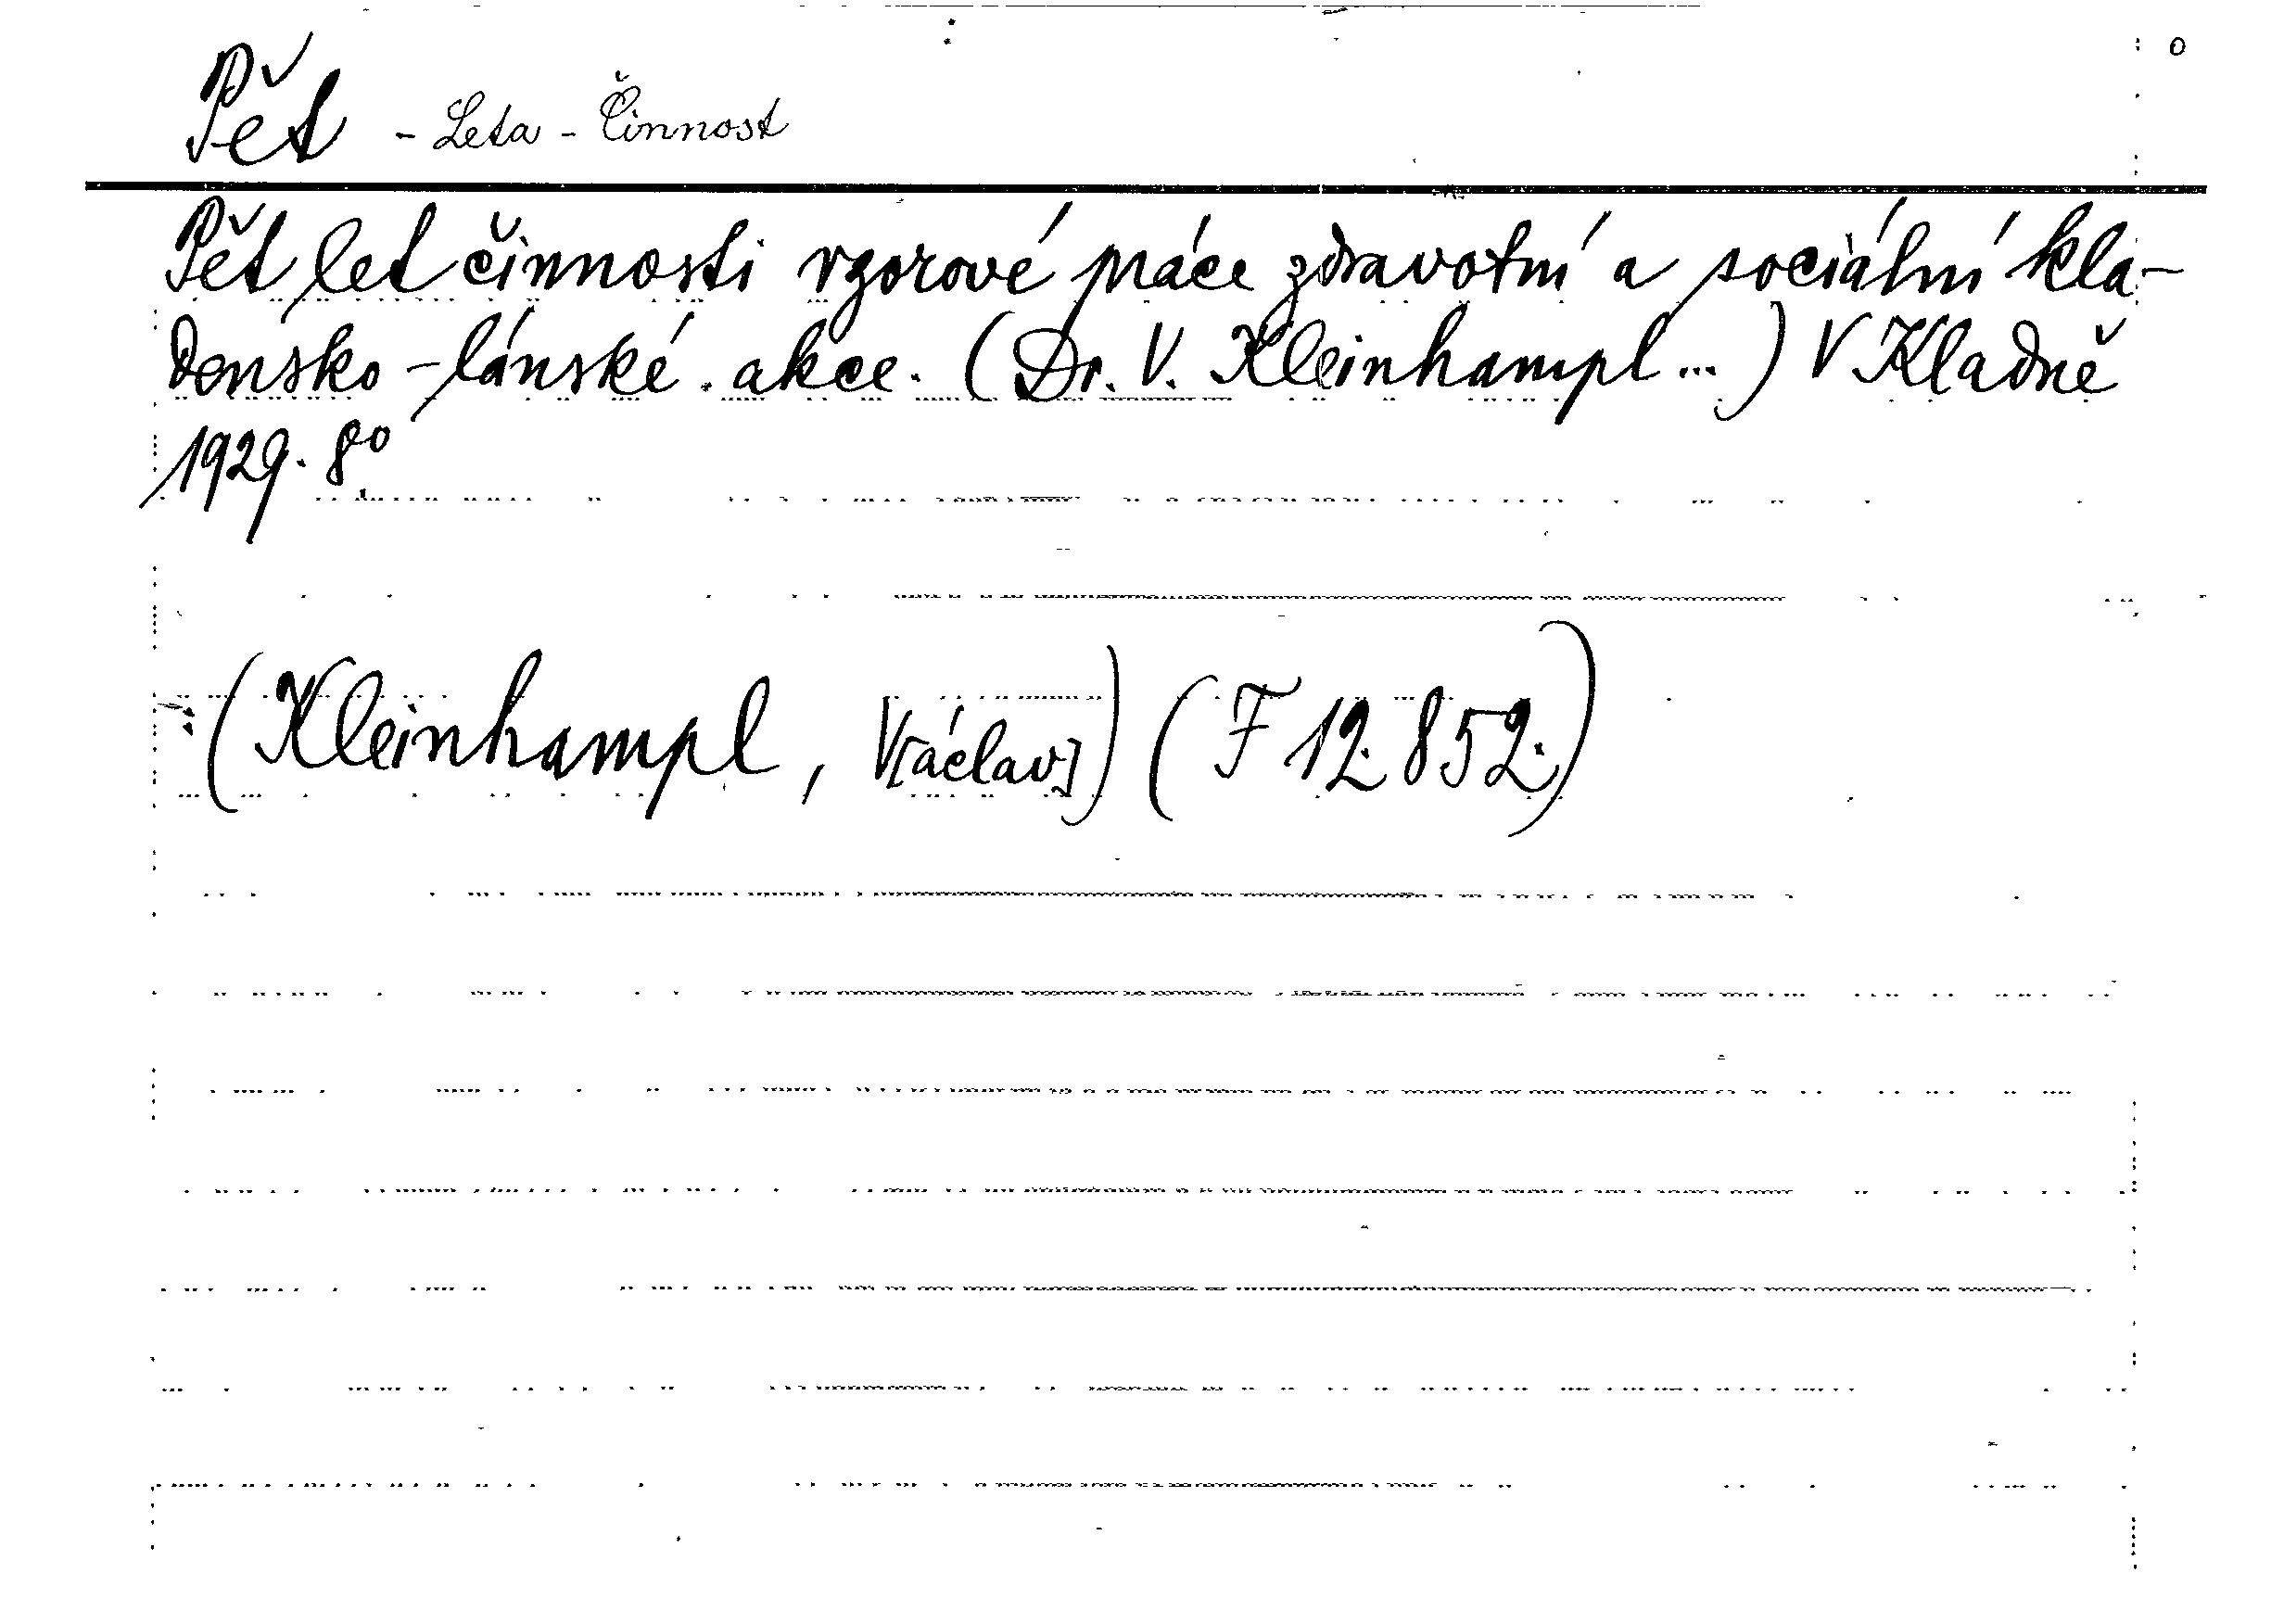 Pět - Leta - Činnost
Pět let činnosti vzorové práce zdravotní a sociální kla-
densko-lánské akce. (Dr. V. Kleinhampl...) V Kladně
1929. 8°
(Kleinhampl, V[áclav]) (F 12.852.)